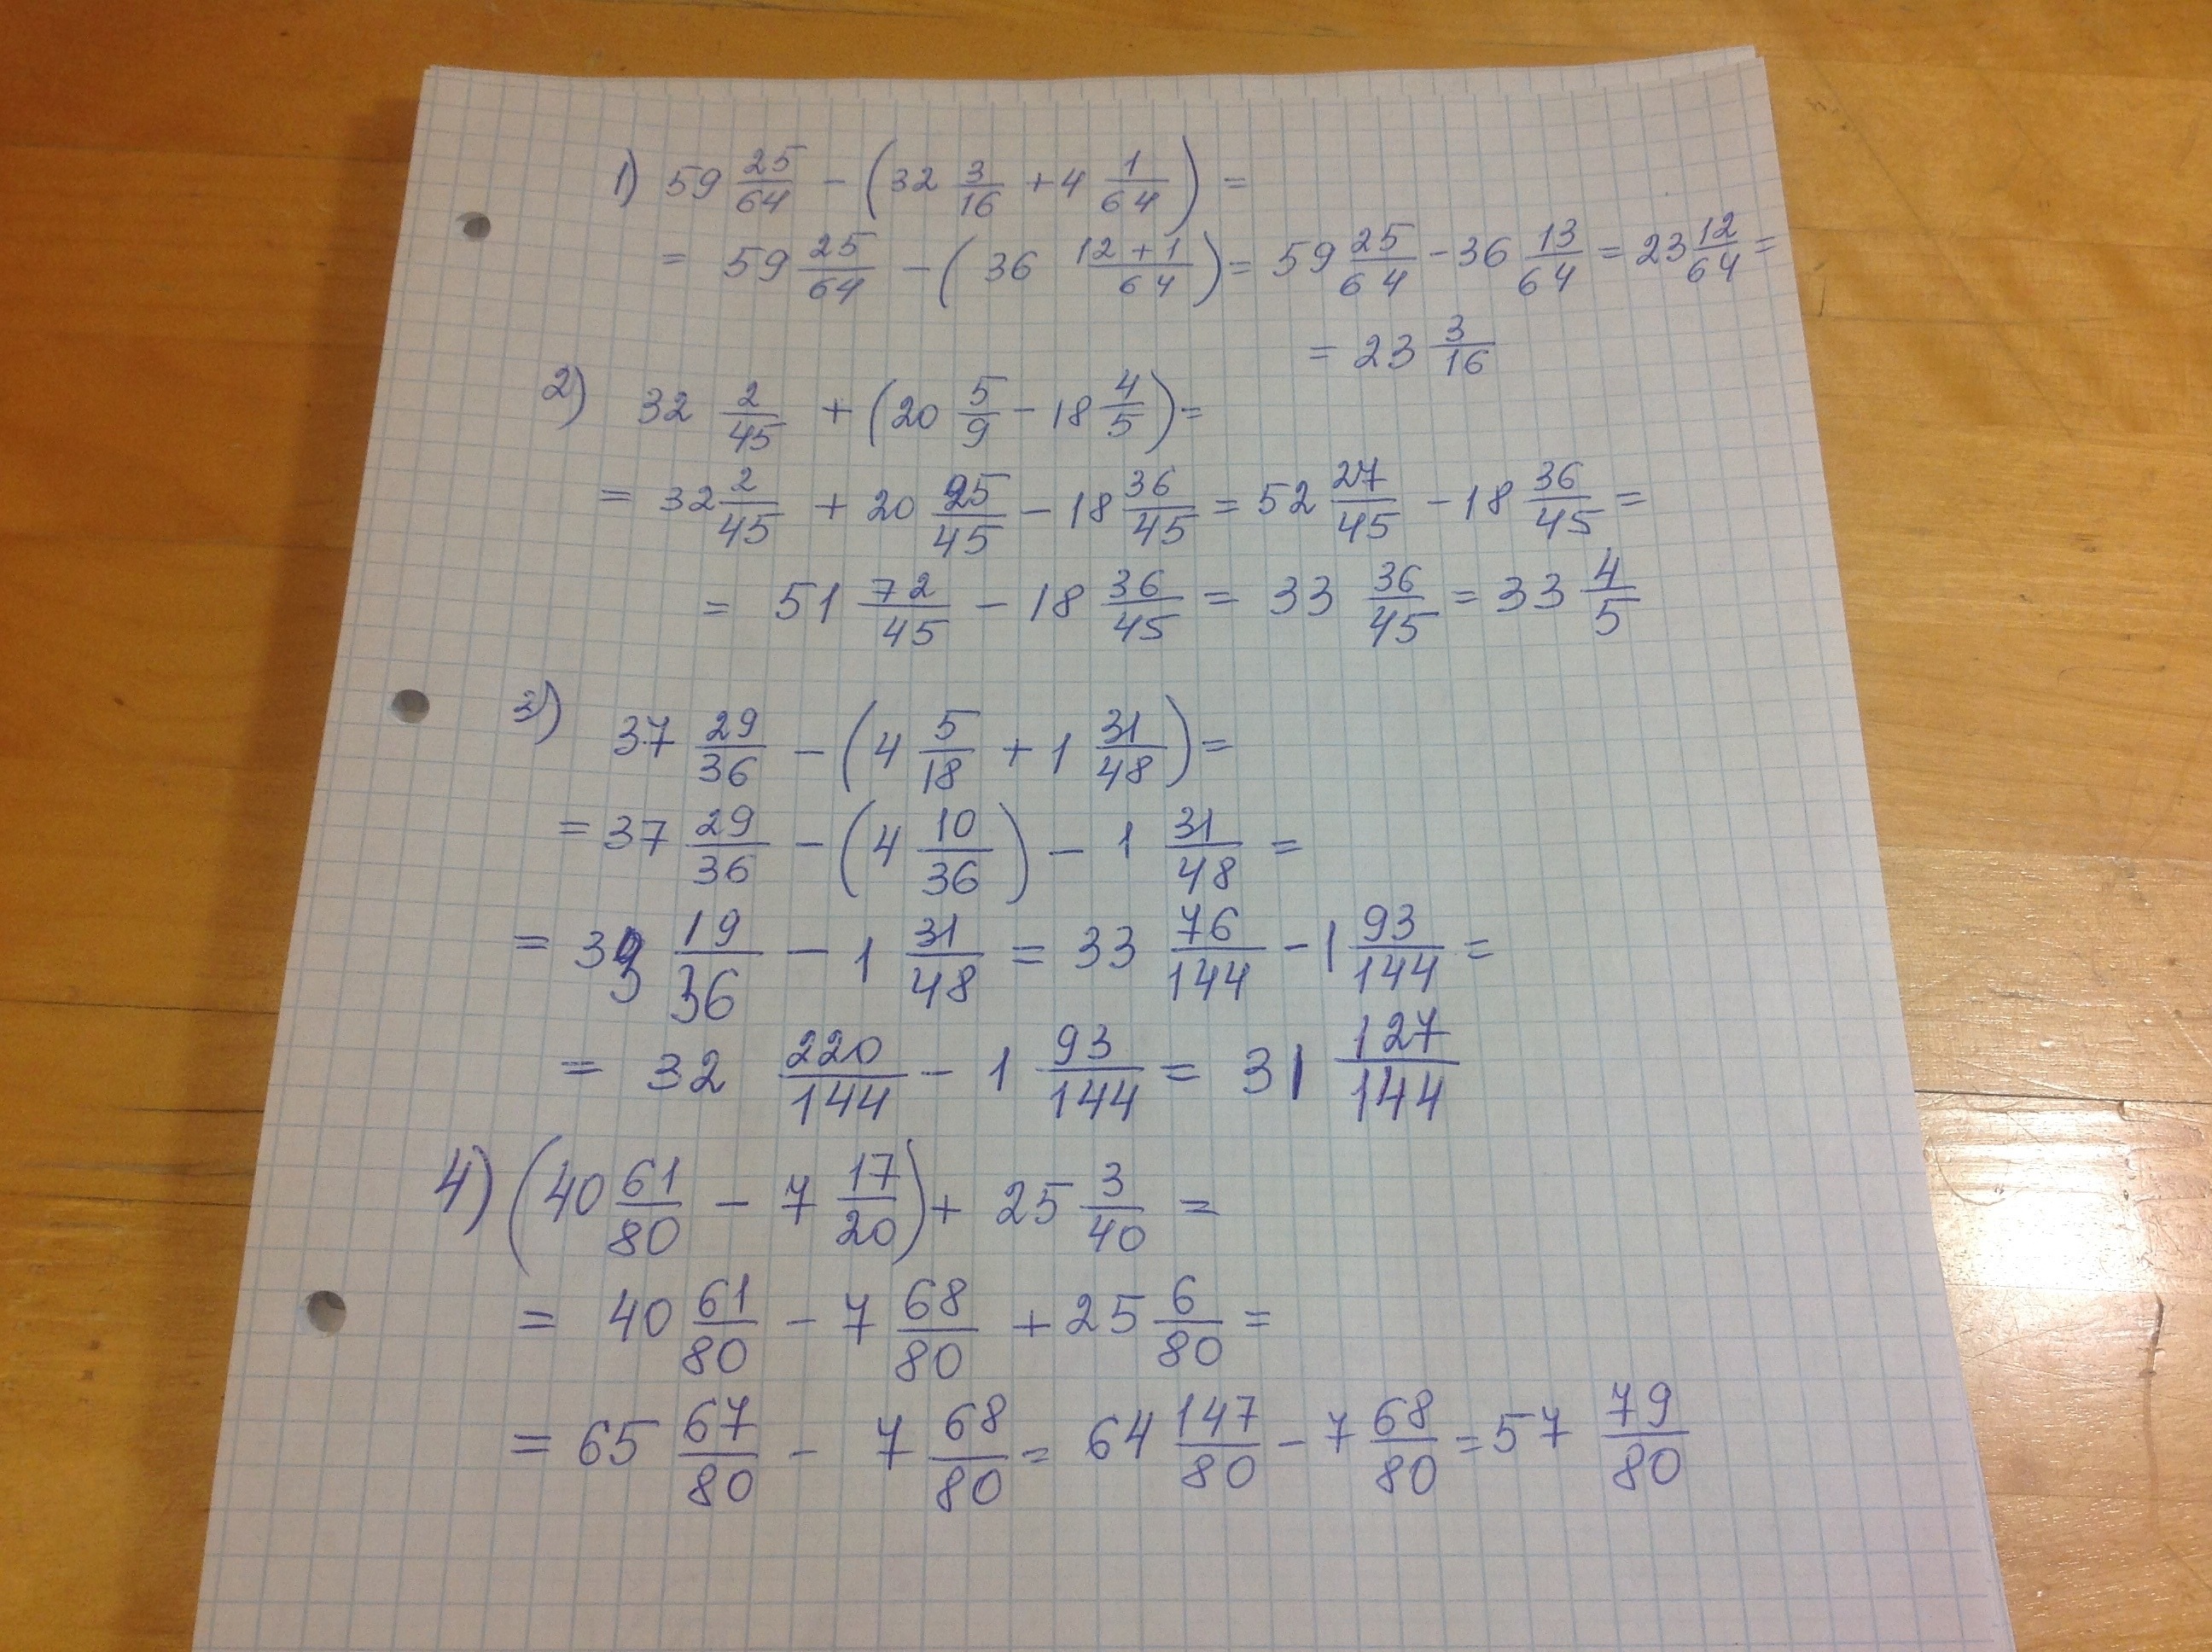 1) 59 25/64 - (32 3/16 + 4 1/64) =
= 59 25/64 - (36 (12+1)/64) = 59 25/64 - 36 13/64 = 23 12/64 =
= 23 3/16
2) 32 2/45 + (20 5/9 - 18 4/5) =
= 32 2/45 + 20 25/45 - 18 36/45 = 52 27/45 - 18 36/45 =
= 51 72/45 - 18 36/45 = 33 36/45 = 33 4/5
3) 37 29/36 - (4 5/18 + 1 31/48) =
= 37 29/36 - (4 10/36) - 1 31/48 =
= 33 19/36 - 1 31/48 = 33 76/144 - 1 93/144 =
= 32 220/144 - 1 93/144 = 31 127/144
4) (40 61/80 - 7 17/20) + 25 3/40 =
= 40 61/80 - 7 68/80 + 25 6/80 =
= 65 67/80 - 7 68/80 = 64 147/80 - 7 68/80 = 57 79/80